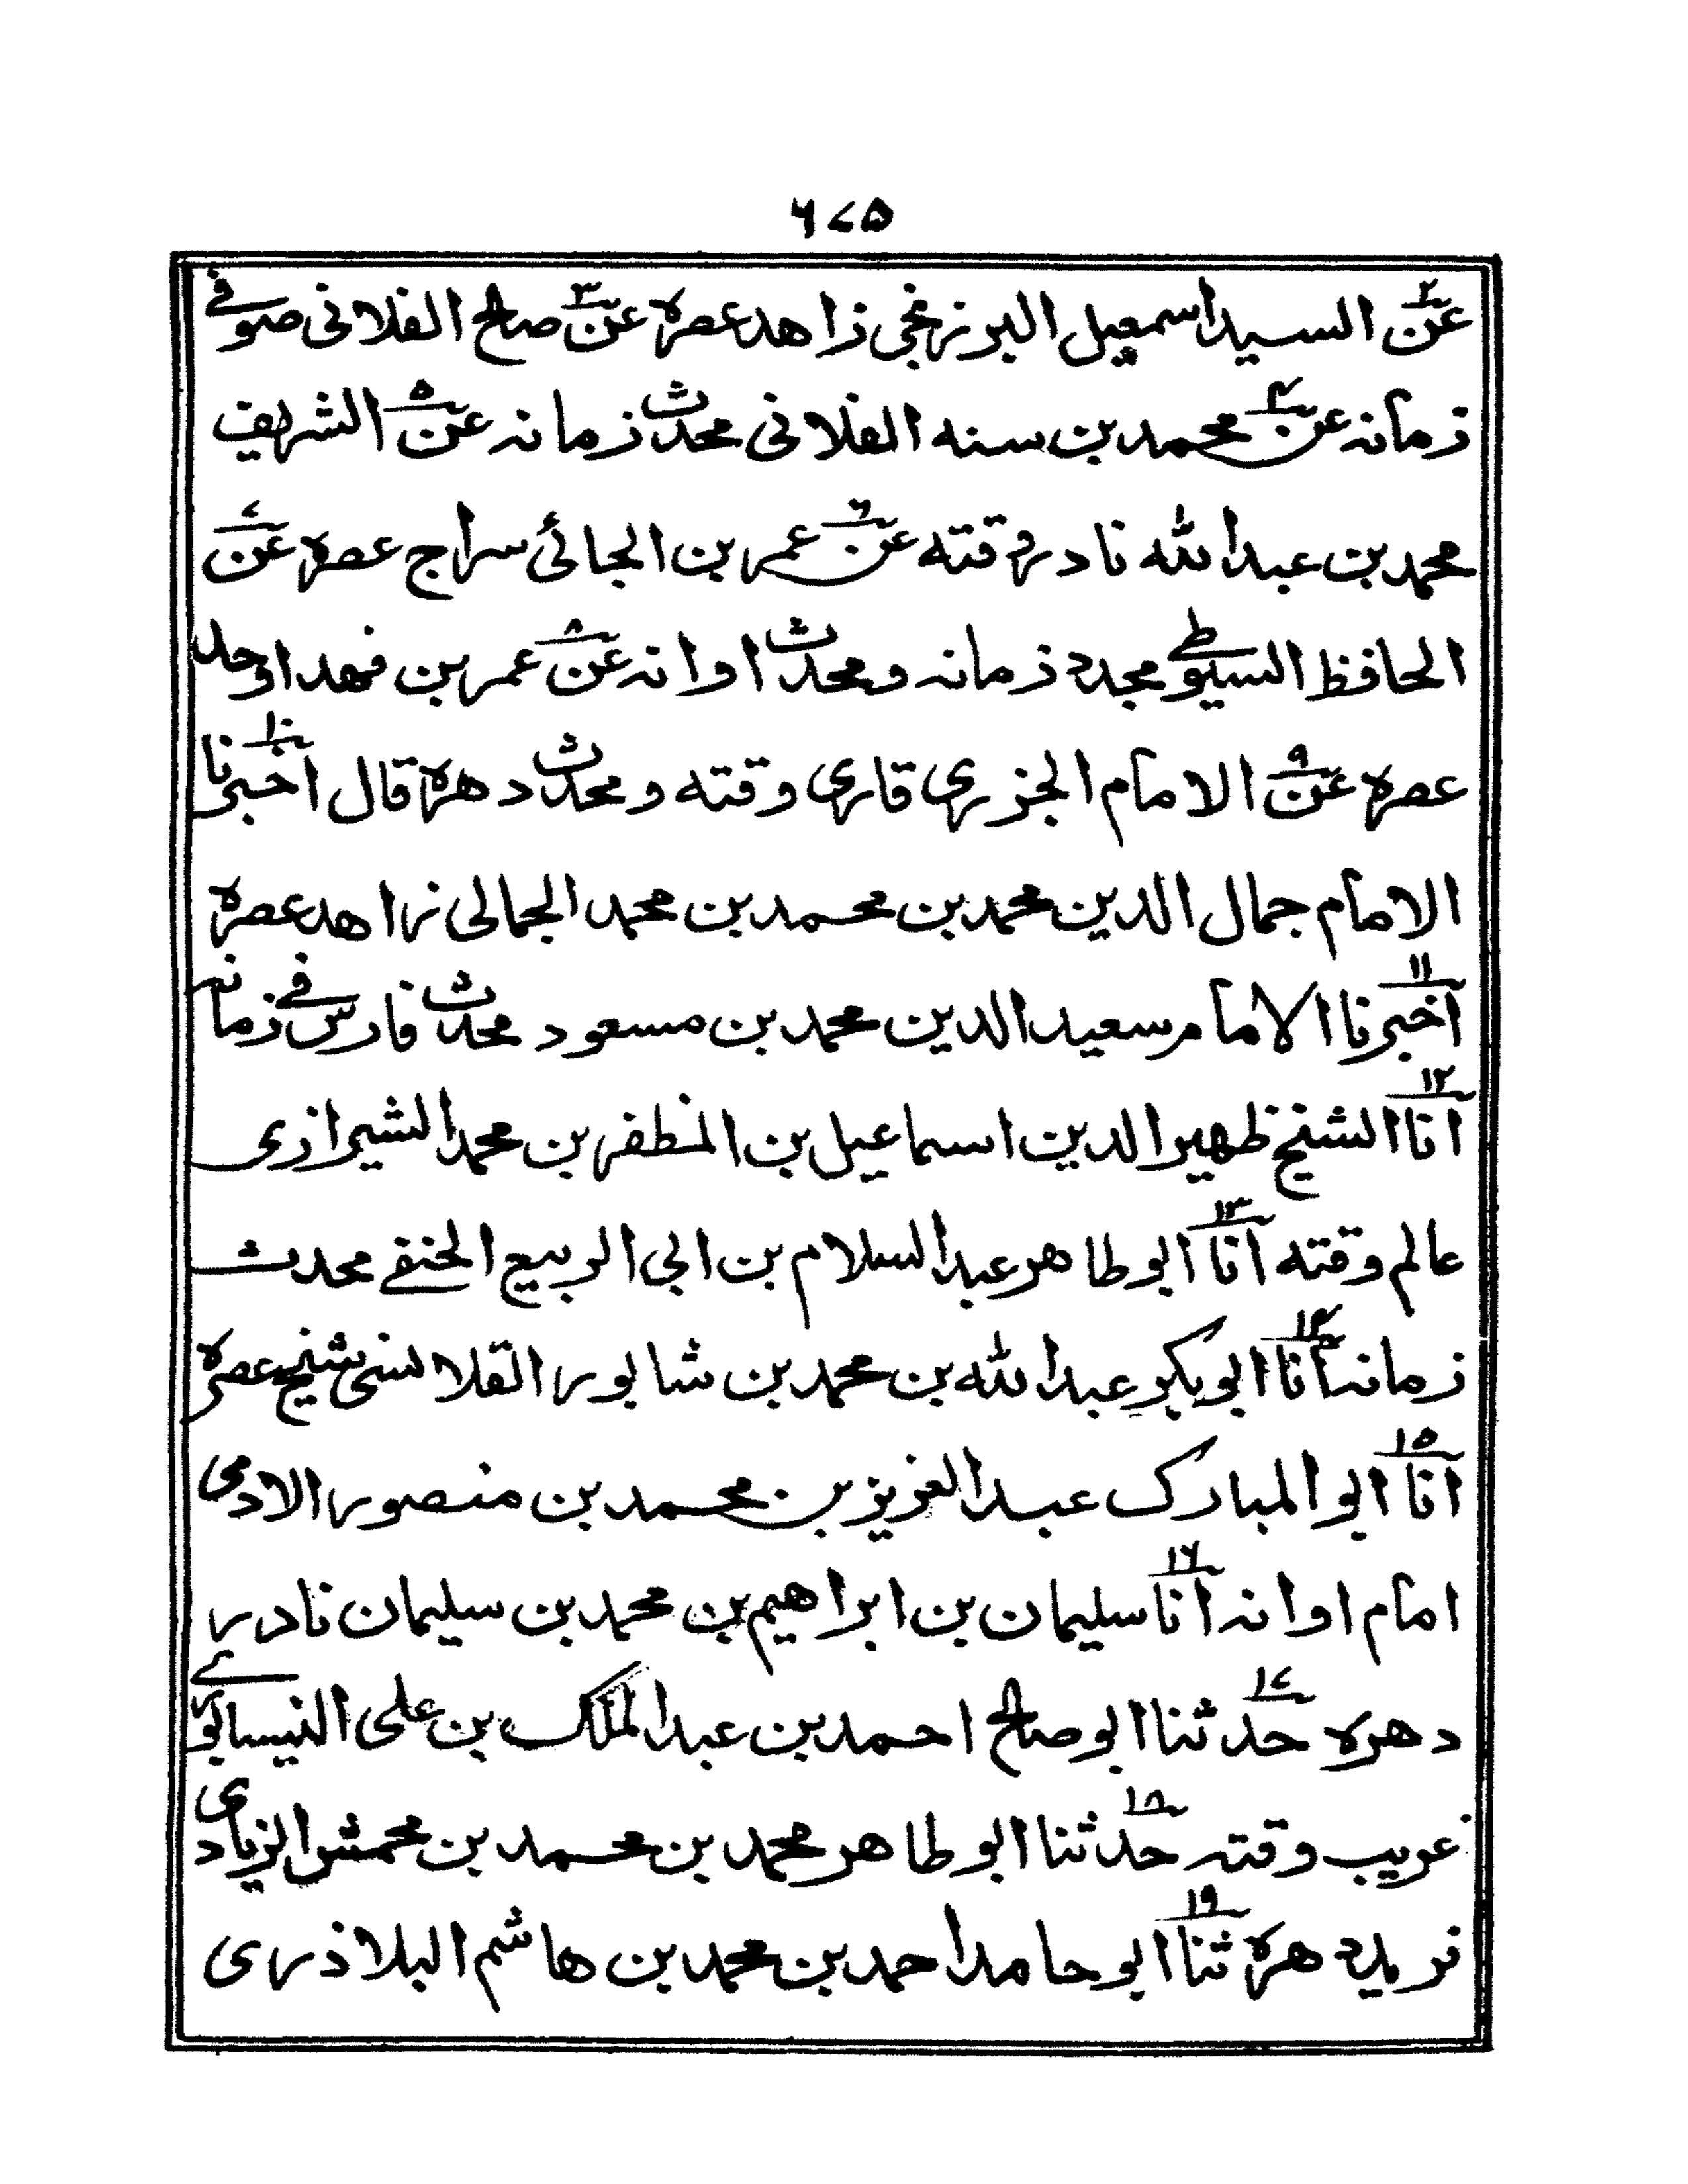 ٦٧٥
عن٢ السيد اسمعيل البرزنجي زاهد عصره عن٣ صالح الفلانى صوفي
زمانه عن٤ محمد بن سنه الفلانى محدث زمانه عن٥ الشريف
محمد بن عبد الله نادر وقته عن٦ عمر بن الجائى سراج عصره عن٧
الحافظ السيوطي مجدد زمانه ومحدث اوانه عن٨ عمر بن فهد اوحد
عصره عن٩ الامام الجزرى قارى وقته ومحدث دهره قال اخبرنا١٠
الامام جمال الدين محمد بن محمد بن محمد الجمالى زاهد عصره
اخبرنا١١ الامام سعيد الدين محمد بن مسعود محدث فارس في زمانه
انا١٢ الشيخ ظهير الدين اسماعيل بن المظفر بن محمد الشيرازى
عالم وقته انا١٣ ابو طاهر عبد السلام بن ابى الربيع الحنفي محدث
زمانه انا١٤ ابو بكر عبد الله بن محمد بن شابور القلانسى شيخ عصره
انا١٥ ابو المبارك عبد العزيز بن محمد بن منصور الادمى
امام اوانه انا١٦ سليمان بن ابراهيم بن محمد بن سليمان نادر
دهره حدثنا١٧ ابو صالح احمد بن عبد الملك بن على النيسابورے
غريب وقته حدثنا١٨ ابو طاهر محمد بن محمد بن محمش الزيادى
فريد دهره ثنا١٩ ابو حامد احمد بن محمد بن هاشم البلاذرى